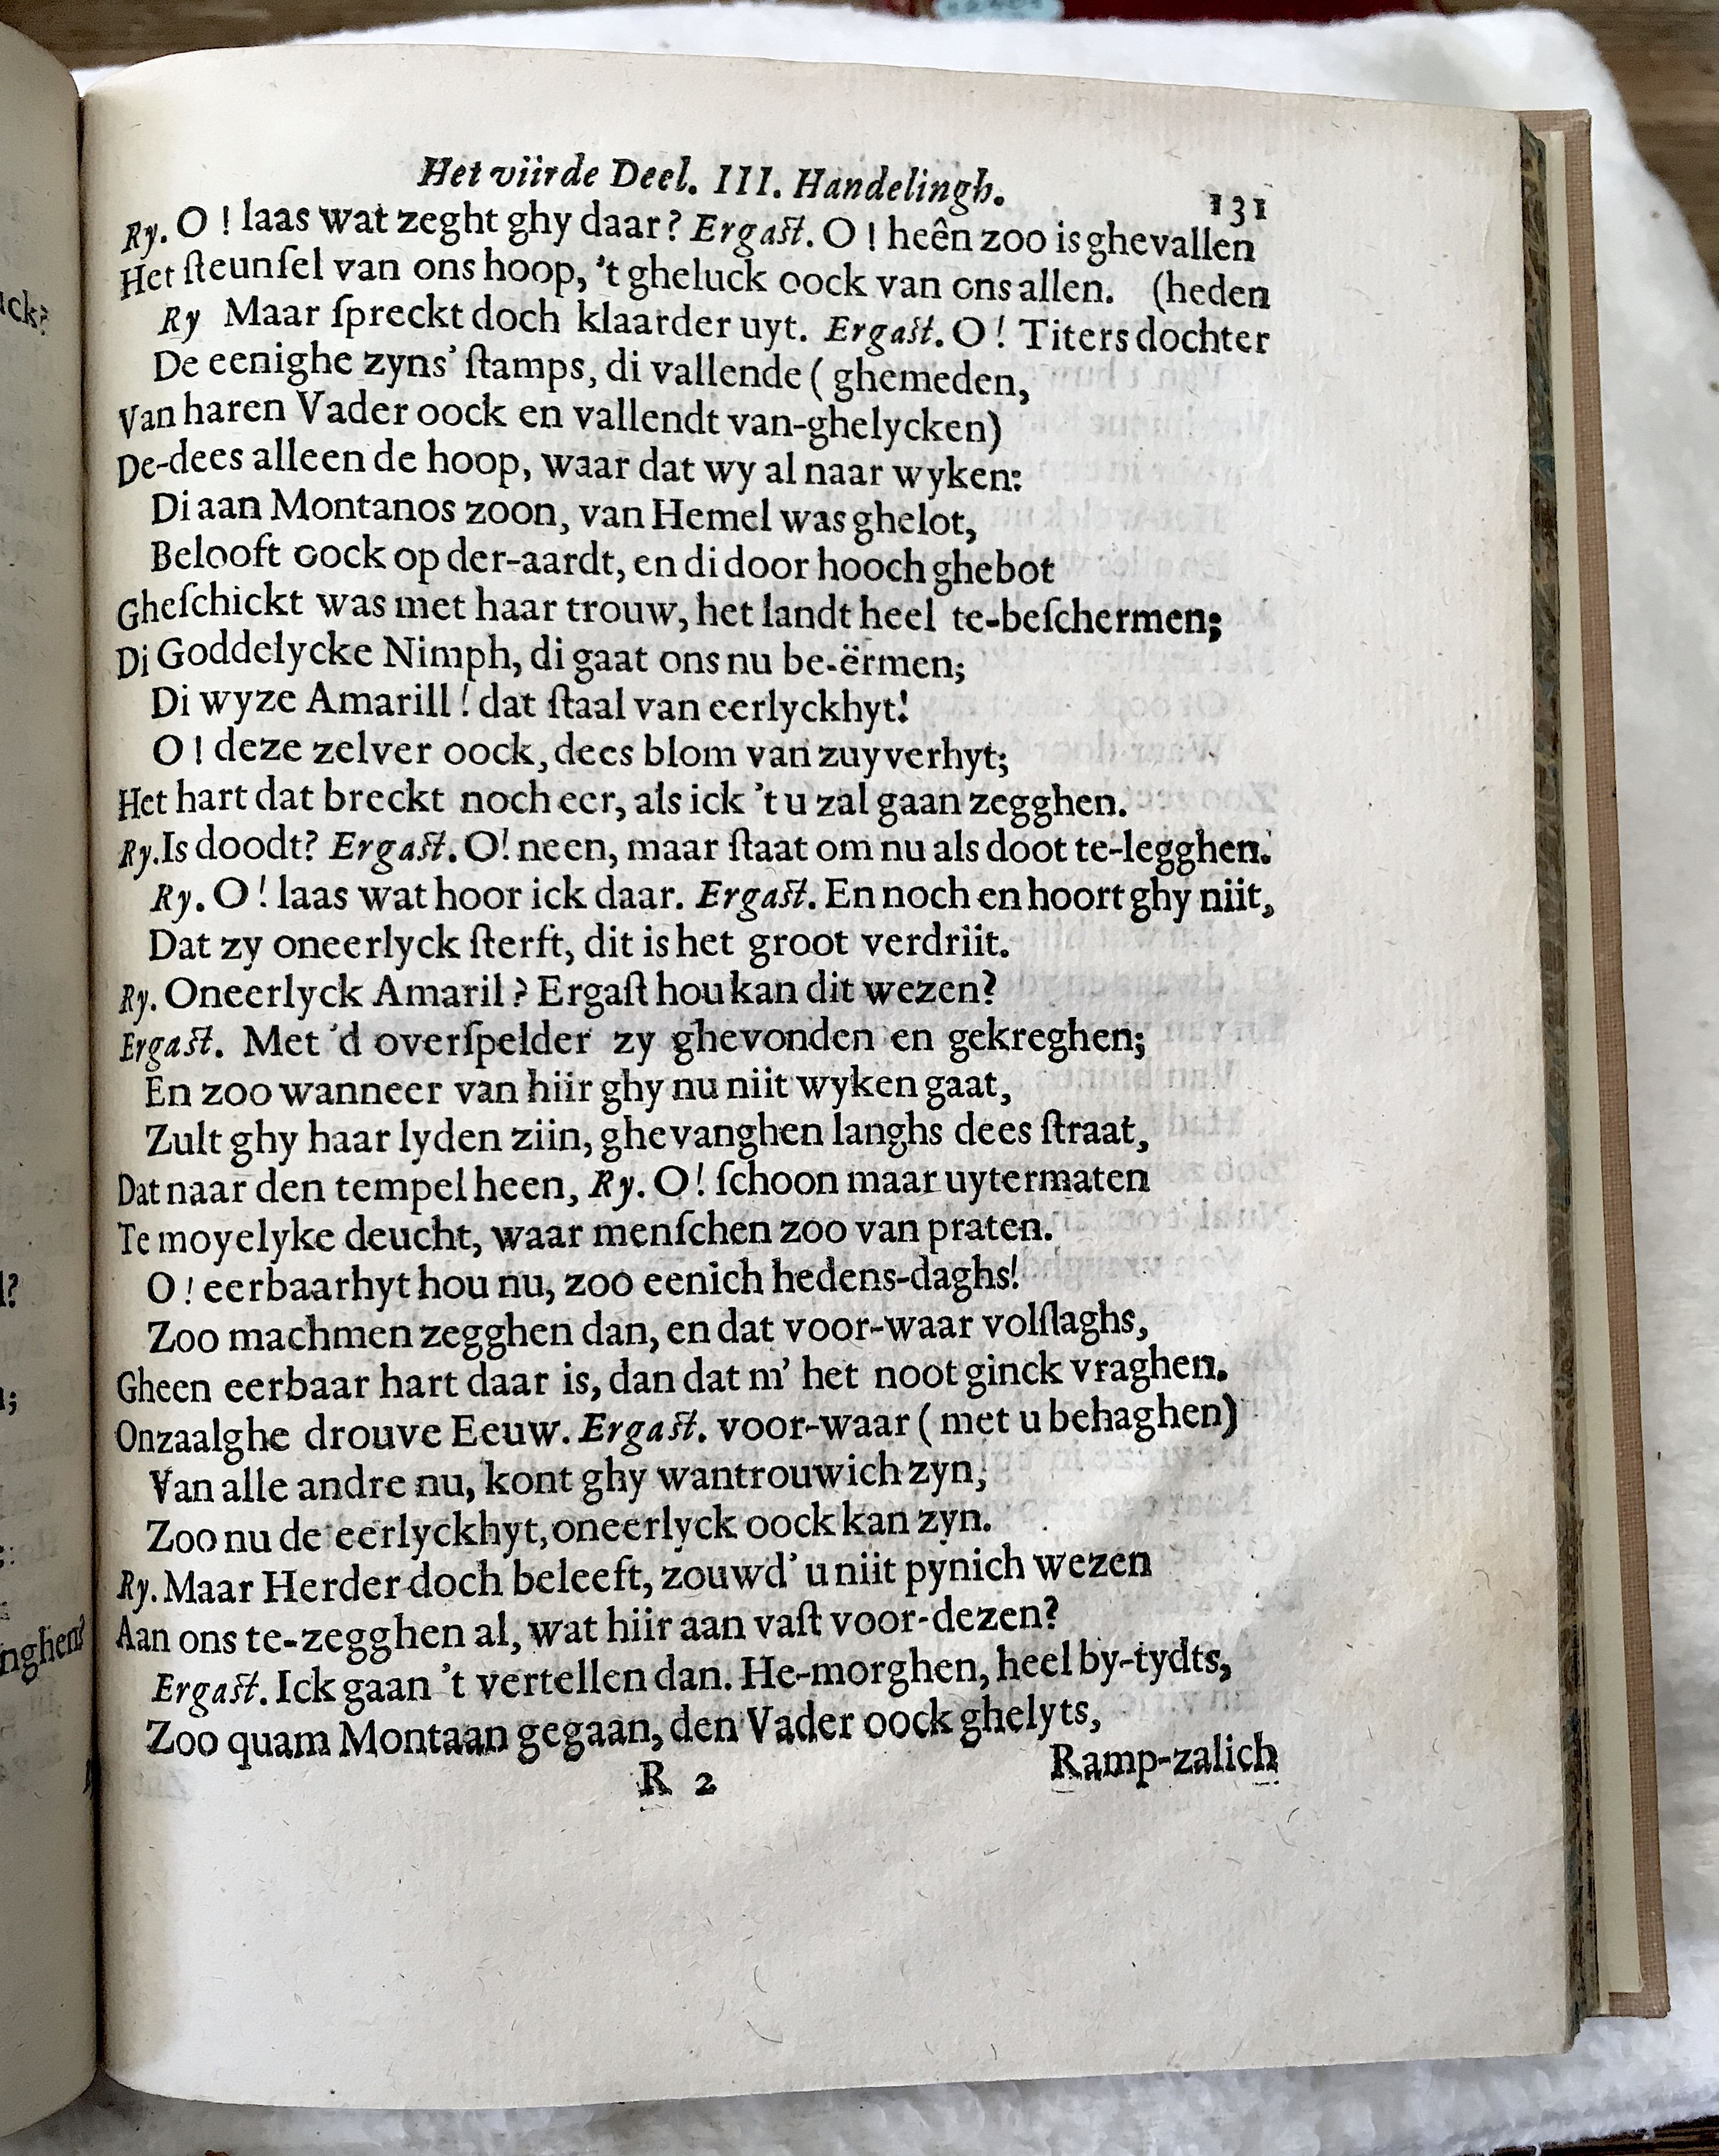 Het viirde Deel. III. Handelingh. 131
Ry. O ! laas wat zeght ghy daar? Ergaſt. O ! heên zoo is ghevallen
Het ſteunſel van ons hoop, 't gheluck oock van ons allen. (heden
Ry Maar ſpreckt doch klaarder uyt. Ergaſt. O! Titers dochter
De eenighe zyns' ſtamps, di vallende ( ghemeden,
Van haren Vader oock en vallendt van-ghelycken)
De-dees alleen de hoop, waar dat wy al naar wyken:
Di aan Montanos zoon, van Hemel was ghelot,
Belooft oock op der-aardt, en di door hooch ghebot
Gheſchickt was met haar trouw, het landt heel te-beſchermen;
Di Goddelycke Nimph, di gaat ons nu be-ërmen;
Di wyze Amarill! dat ſtaal van eerlyckhyt!
O! deze zelver oock, dees blom van zuyverhyt;
Het hart dat breckt noch eer, als ick 't u zal gaan zegghen.
Ry. Is doodt? Ergaſt. O! neen, maar ſtaat om nu als doot te-legghen.
Ry. O! laas wat hoor ick daar. Ergaſt. En noch en hoort ghy niit,
Dat zy oneerlyck ſterft, dit is het groot verdriit.
Ry. Oneerlyck Amaril? Ergaſt hou kan dit wezen?
Ergaſt. Met 'd overſpelder zy ghevonden en gekreghen;
En zoo wanneer van hiir ghy nu niit wyken gaat,
Zult ghy haar lyden ziin, ghevanghen langhs dees ſtraat,
Dat naar den tempel heen, Ry. O! ſchoon maar uytermaten
Te moyelyke deucht, waar menſchen zoo van praten.
O! eerbaarhyt hou nu, zoo eenich hedens-daghs!
Zoo machmen zegghen dan, en dat voor-waar volſlaghs,
Gheen eerbaar hart daar is, dan dat m' het noot ginck vraghen.
Onzaalghe drouve Eeuw. Ergaſt. voor-waar ( met u behaghen)
Van alle andre nu, kont ghy wantrouwich zyn,
Zoo nu de eerlyckhyt, oneerlyck oock kan zyn.
Ry. Maar Herder doch beleeft, zouwd' u niit pynich wezen
Aan ons te-zegghen al, wat hiir aan vaſt voor-dezen?
Ergaſt. Ick gaan 't vertellen dan. He-morghen, heel by-tydts,
Zoo quam Montaan gegaan, den Vader oock ghelyts,
R 2 Ramp-zalich